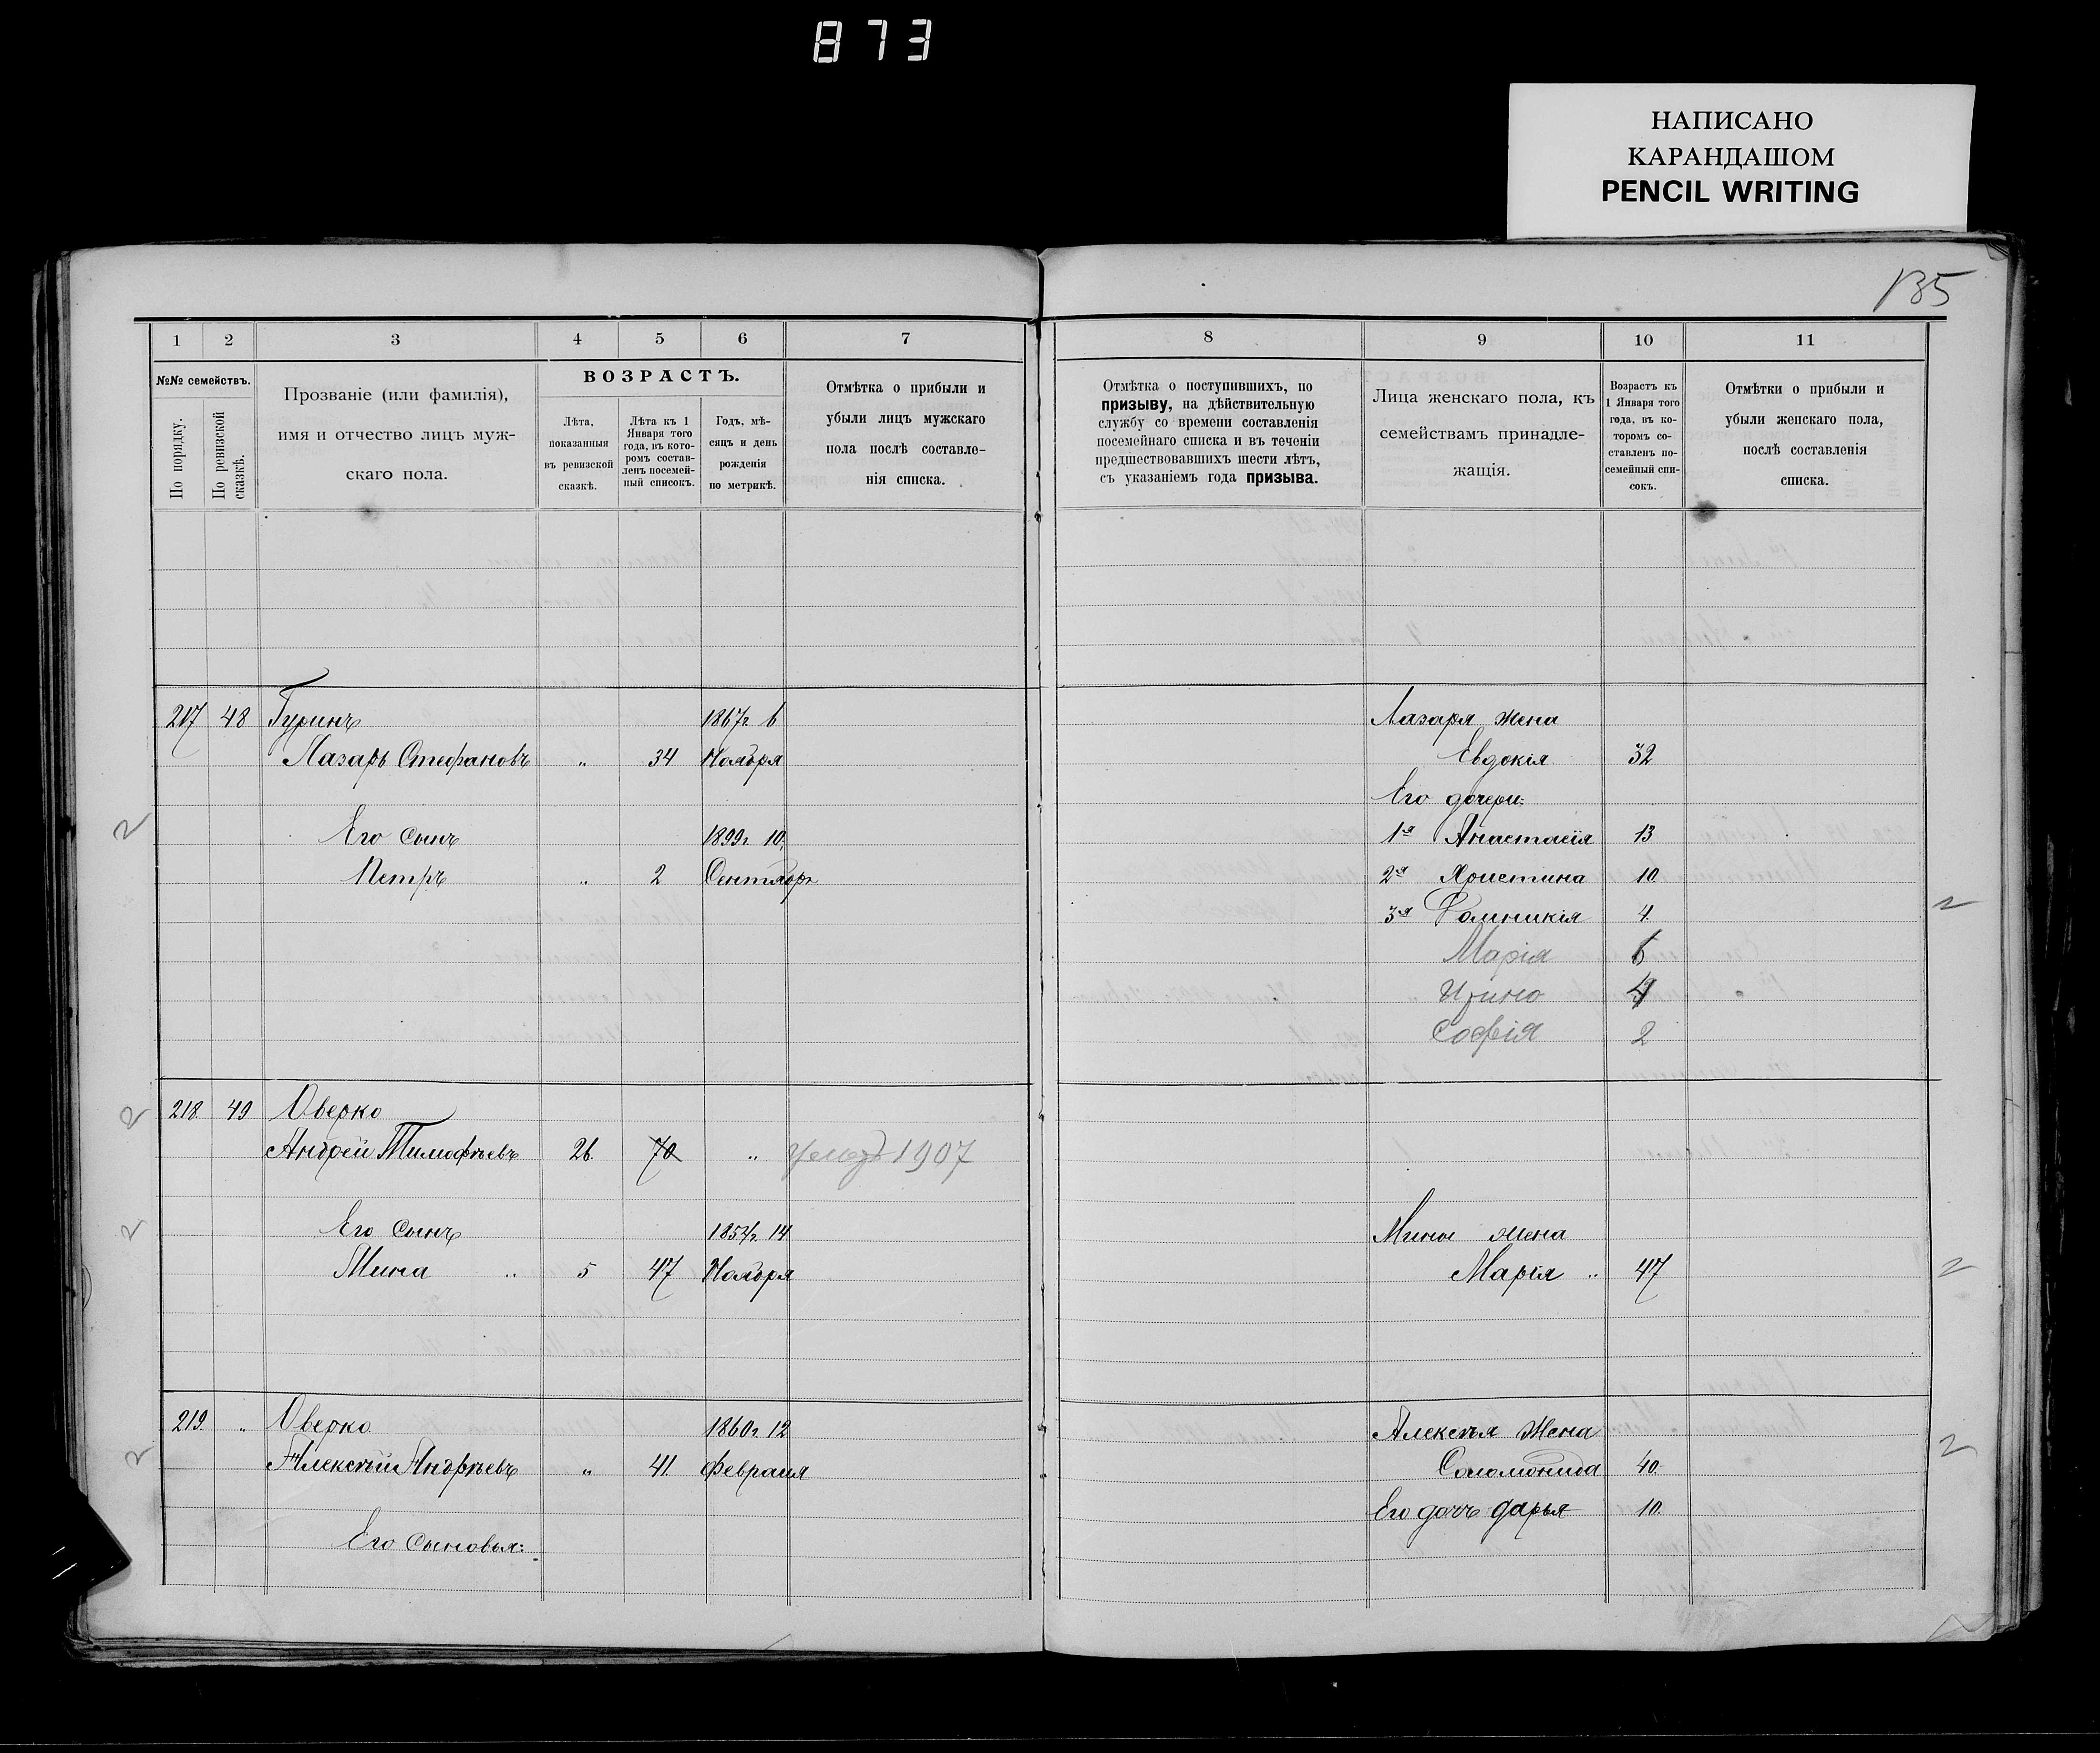 873
НАПИСАНО
КАРАНДАШОМ
PENCIL WRITING
135
1 2 3 4 5 6 7
№№ семействъ.
По порядку.
По ревизской сказкѣ.
Прозваніе (или фамилія),
имя и отчество лицъ муж-
скаго пола.
ВОЗРАСТЪ.
Лѣта,
показанныя
въ ревизской
сказкѣ.
Лѣта къ 1
Января того
года, въ кото-
ромъ состав-
ленъ посемей-
ный списокъ.
Годъ, мѣ-
сяцъ и день
рожденія
по метрикѣ.
Отмѣтка о прибыли и
убыли лицъ мужскаго
пола послѣ составле-
нія списка.
217 48 Гуринъ 1867г. 6
Лазарь Стефановъ „ 34 Ноября
Его сынъ 1899г. 10
Петръ „ 2 Сентябр
218. 49 Оверко
Андрей Тимофѣевъ 26. 70 „ 1907
Его сынъ 1854г. 14
Мина „ 5 47 Ноября
219. „ Оверко 1860г. 12
Алексѣй Андрѣевъ „ 41. Февраля
Его сыновья:
8 9 10 11
Отмѣтка о поступившихъ, по
призыву, на дѣйствительную
службу со времени составленія
посемейнаго списка и въ теченіи
предшествовавшихъ шести лѣтъ,
съ указаніемъ года призыва.
Лица женскаго пола, къ
семействамъ принадле-
жащія.
Возрастъ къ
1 Января того
года, въ ко-
торомъ со-
ставленъ по-
семейный спи-
сокъ.
Отмѣтки о прибыли и
убыли женскаго пола,
послѣ составленія
списка.
Лазаря жена
Евдокія 32
Его дочери:
1я Анастасія 13
2я Христина 10.
3я Домникія 4.
Марія 6
Ирина
Софія 2
Мины жена
Марія „ 47
Алексѣя жена
Соломонида 40.
Его дочь Дарья 10.
2
2
2
2
2
2
2